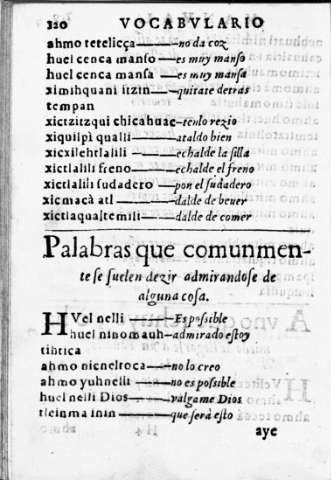 320 VOCABVLARIO
ahmo tetelicça——no da coz
huel cenca manſo——es muy manſo
huel cenca manſa——es muy manſa
ximihquani itzin——quitate detras
tempan
xictzitzqui chicahuac—tenlo rezio
xiquilpi qualli——ataldo bien
——echalde la ſilla
xictlalili freno——echalde el freno
xictlalili ſudadero——pon el ſudadero
xicmacà atl——dalde de beuer
xictlaqualtemili——dalde de comer
Palabras que comunmen-
te se ſuelen dezir admirandoſe de
alguna coſa.
HVel nelli——Es poſſible
huel ninomauh—admirado eſtoy
tihtica
ahmo nicneltoca——no lo creo
ahmo yuhnelli——no es poſſible
huel nelli Dios——valgame Dios
tleinma inin——que ſerà eſto
aye